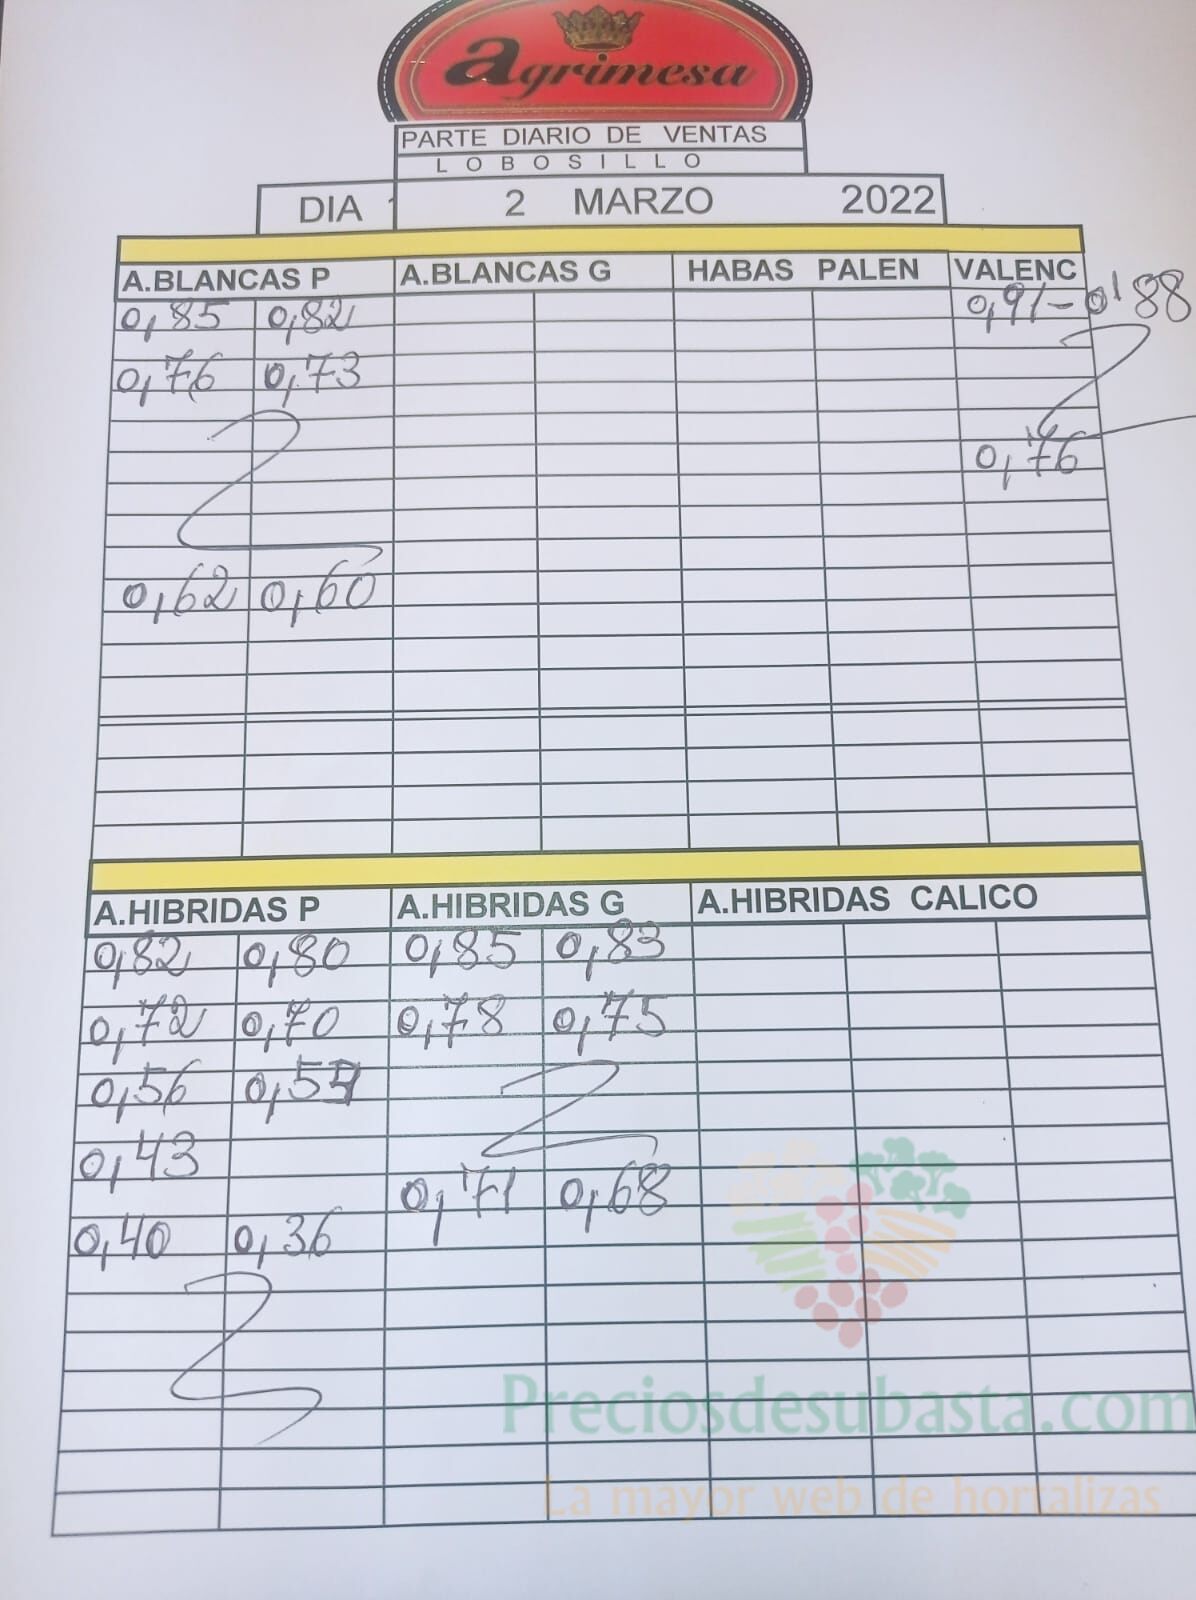 Agrimesa
PARTE DIARIO DE VENTAS
LOBOSILLO
DIA 2 MARZO 2022
A.BLANCAS P A.BLANCAS G HABAS PALEN VALENC
0,85 0,82 0,91-0'88
0,76 0,73
0,76
0,62 0,60
A.HIBRIDAS P A.HIBRIDAS G A.HIBRIDAS CALICO
0,82 0,80 0,85 0,83
0,72 0,70 0,78 0,75
0,56
0,43
0,71 0,68
0,40 0,36
Preciosdesubasta.com
La mayor web de hortalizas